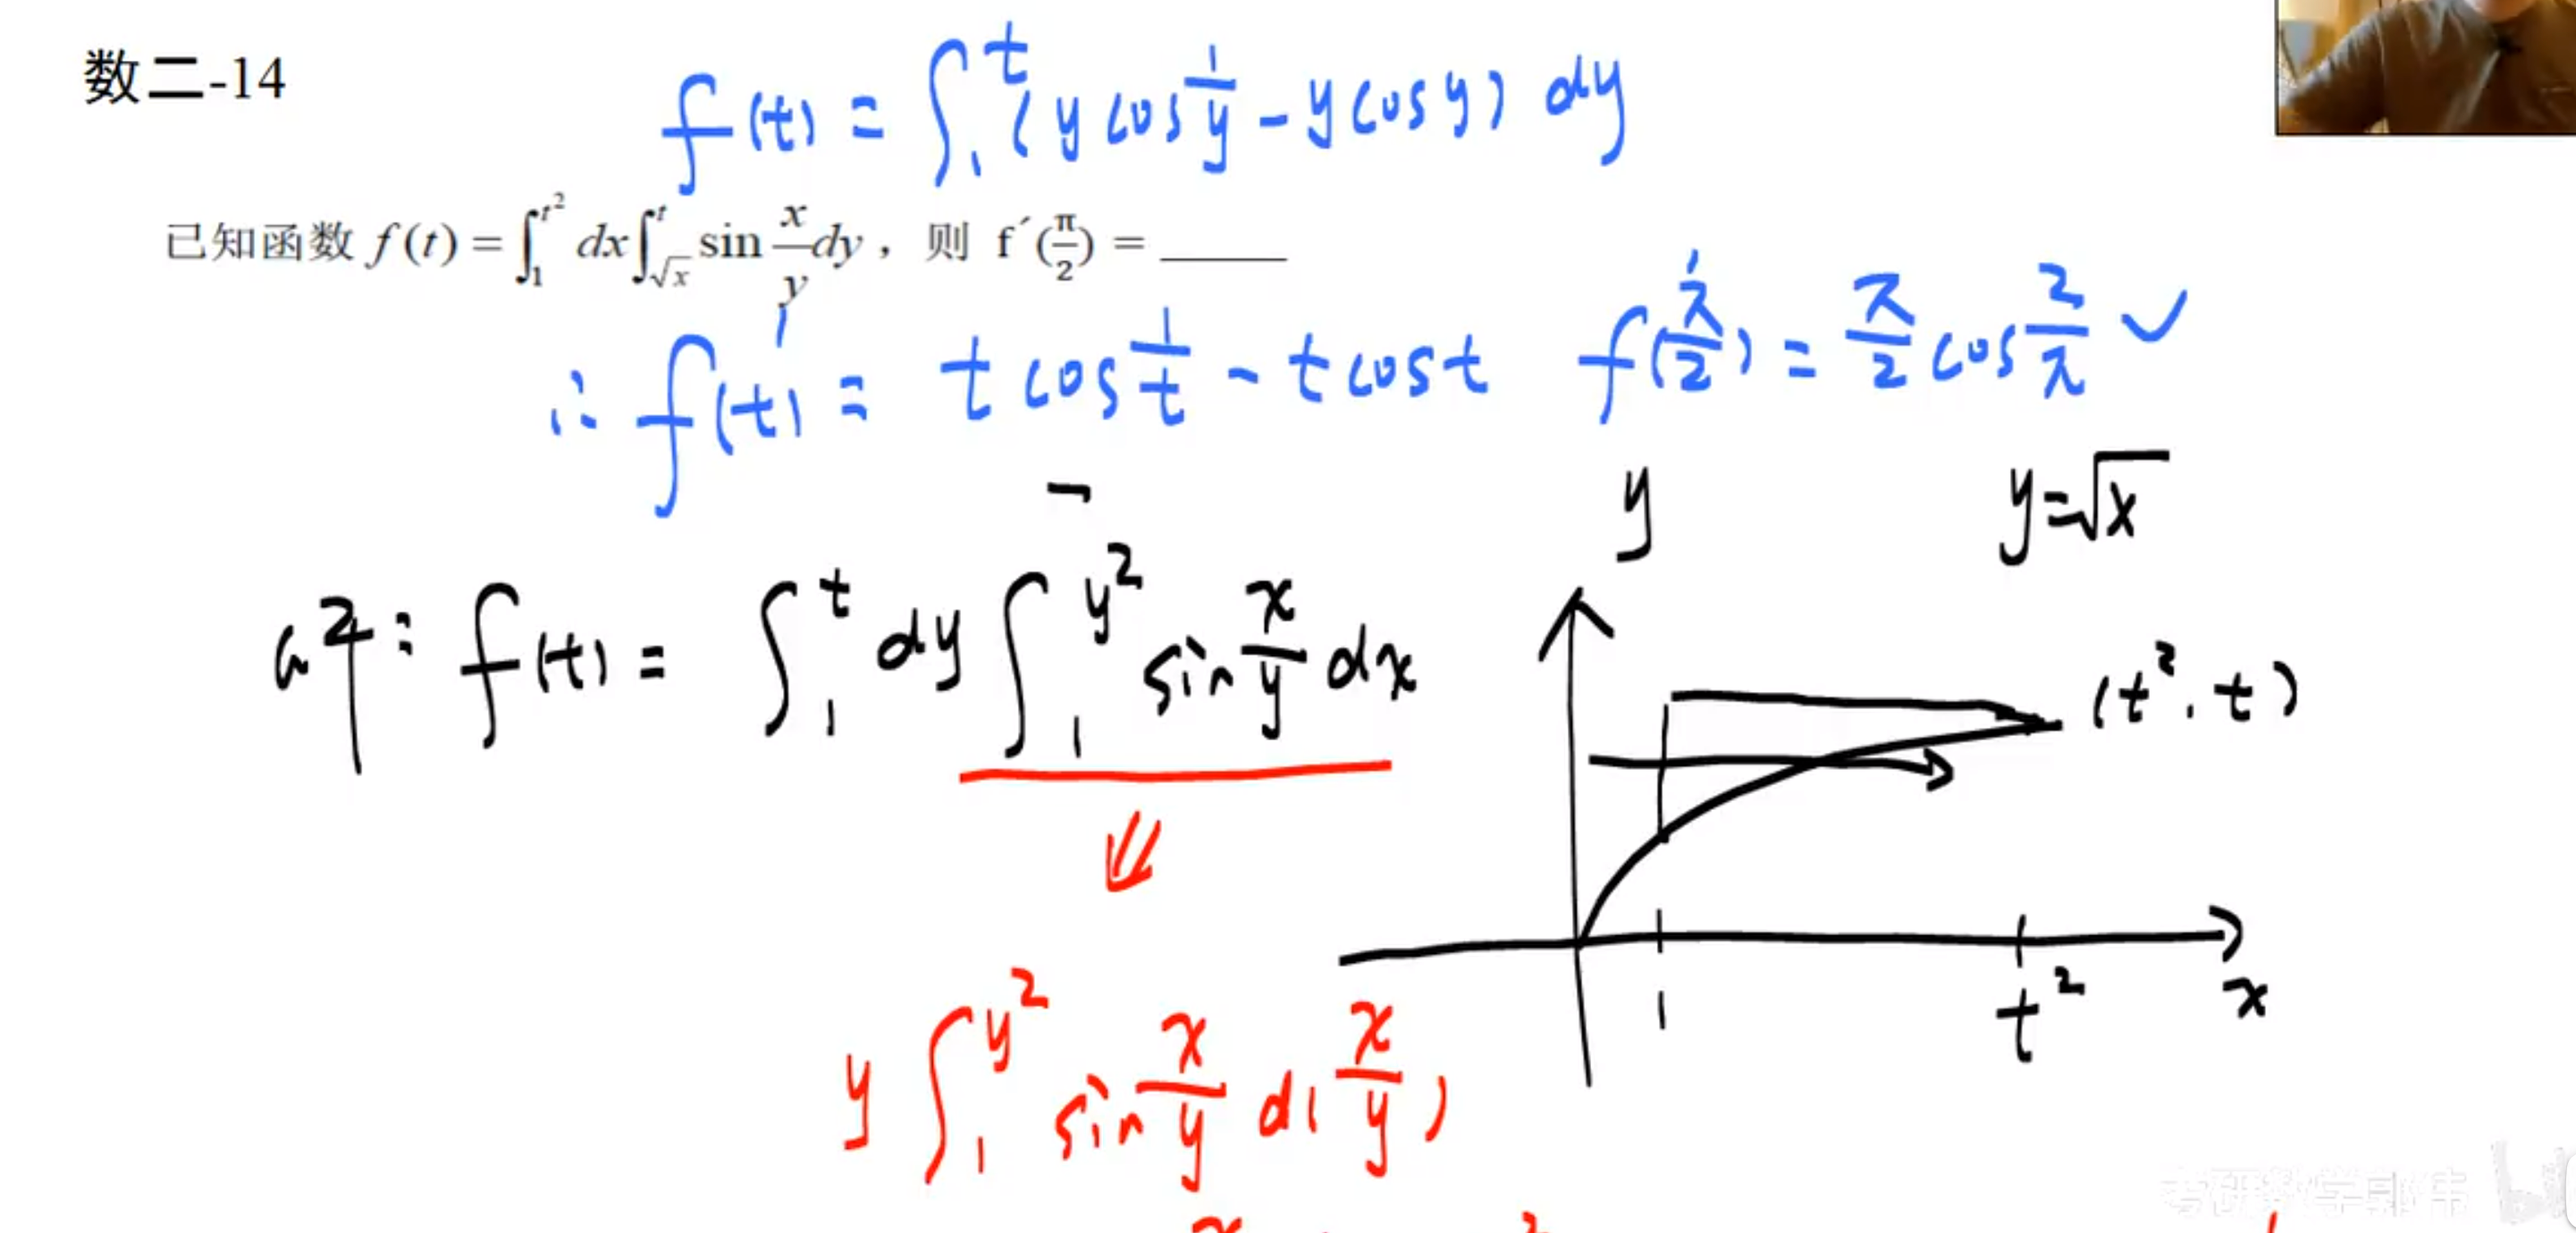 数二-14
f(t) = ∫₁ᵗ (y cos 1/y - y cos y) dy
已知函数 f(t) = ∫₁^{t²} dx ∫_{√x}^{t} sin x/y dy ,则 f´(π/2) = _____
∴ f'(t) = t cos 1/t - t cos t f'(π/2) = π/2 cos 2/π ✓
y y=√x
f(t) = ∫₁ᵗ dy ∫₁^{y²} sin x/y dx
(t², t)
1 t² x
y ∫₁^{y²} sin x/y d(x/y)
考研数学郭伟